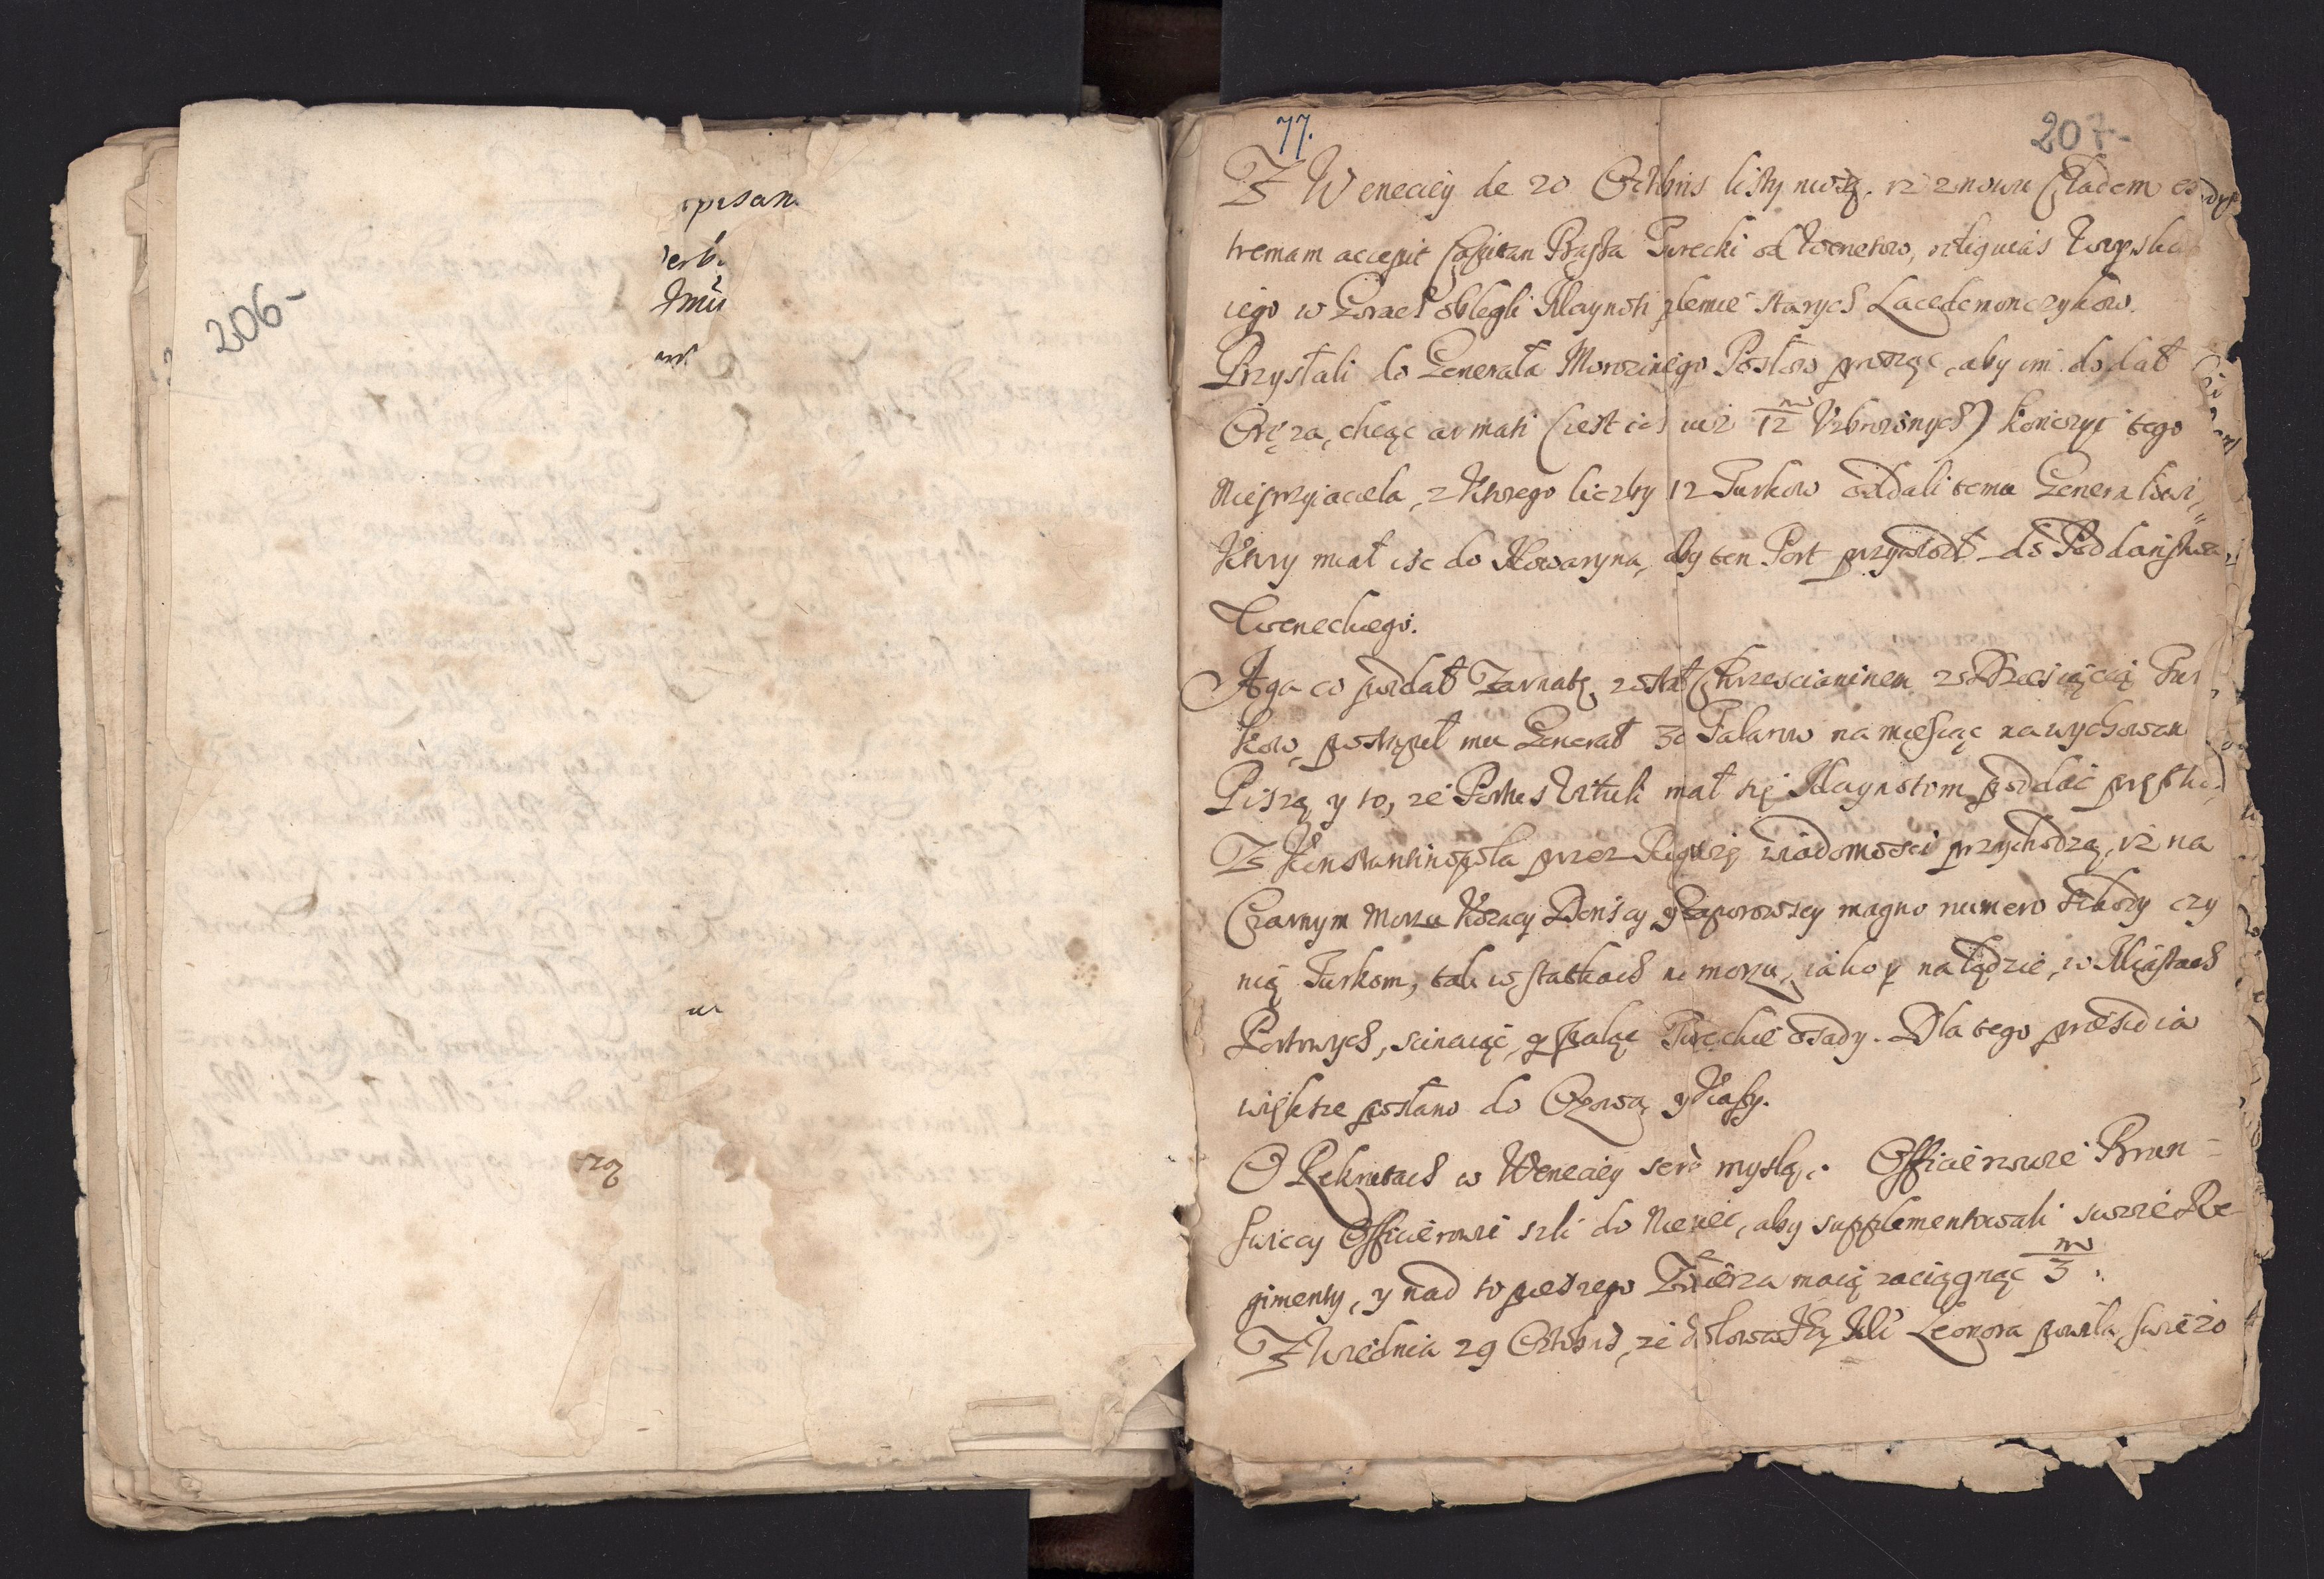 206-
pisan
erb.
szą
77.
207-
Z Weneciey de 20 Octobris listy niosą, iz znowu Cladem ex
tremam accepit Capitan Basza Turecki od Wenetow, reliquias Woyska
iego w Gorach oblegli Maynoti plemie starych Lacedemonczykow.
Przysłali do Generała Moroziniego Posłow prosząc, aby im dodał
Oręza, chcąc armati (iest ich iuz 12/m Uzbroionych) kończyć tego
Nieprzyiaciela, z ktorego liczby 12 Turkow oddali temu Generałowi,
ktory miał isc do Nowaryna, aby ten Port przywiodł do Poddaństwa
Weneckiego.
Aga co poddał Zarnatę, został Chrzescianinem z Dziesiącią Tur
kow, postąpił mu Generał 30 Talarow na miesiąc na wychowan
Piszą y to, ze Portus Vituli miał się Maynotom poddać prętko,
Z Konstantinopola przez Raguzę wiadomosci przychodzą, iz na
Czarnym Morzu Kozacy Donscy y Zaporowscy magno numero szkody czy
nią Turkom, tak w statkach na morzu, iako y na lądzie, w Miastach
Portowych, scinaiąc, y paląc Tureckie osady. Dla tego præsidia
większe posłano do Ozowa y Kaffy.
O Rekrutach w Weneciey serio myslą. Officierowie Brun=
swiccy Officierowie szli do Niemiec, aby supplementowali swoie Re
gimenty, y nad to pieszego Żołnierza maią zaciągnąc 3/m.
Z Wiednia 29 Octobris, ze Krolowa Leonora powiła swiezo